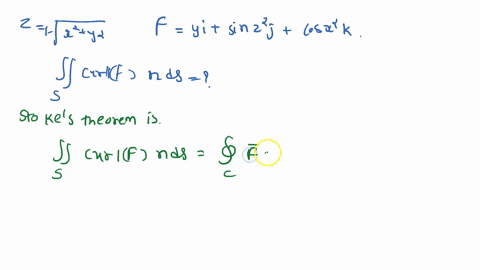 z = 1-√x²+y²   F = yi + sinz²j + cosx² k.
∬S curl(F) n ds = ?
Stoke's theorem is.
∬S curl(F) n ds = ∮C F̅ ·